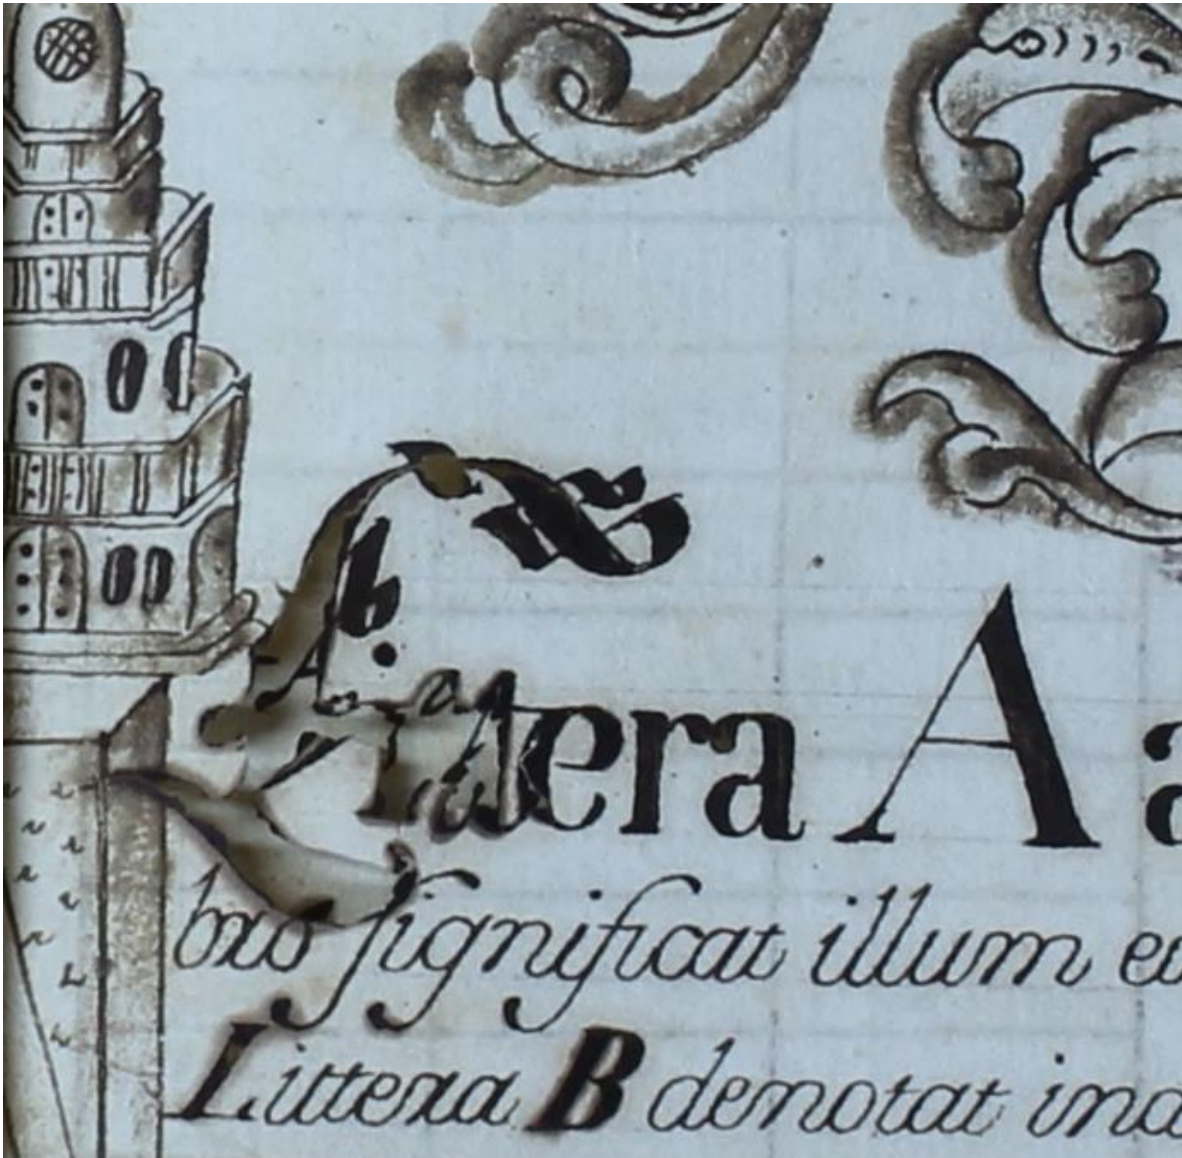 Littera A a
bro significat illum eu
Littera B denotat ind